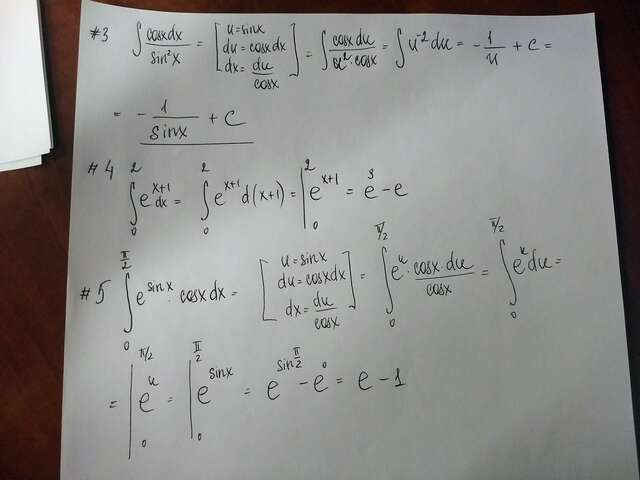 #3 ∫ cosxdx / sin²x = [ u=sinx du=cosxdx dx=du/cosx ] = ∫ cosxdu / u²·cosx = ∫ u⁻² du = -1/u + C =
= -1/sinx + C
#4
∫₀² eˣ⁺¹ dx = ∫₀² eˣ⁺¹ d(x+1) = |₀² eˣ⁺¹ = e³ - e
#5 ∫₀^(π/2) e^(sinx) · cosxdx = [ u=sinx du=cosxdx dx=du/cosx ] = ∫₀^(π/2) e^u · cosx·du / cosx = ∫₀^(π/2) e^u du =
= |₀^(π/2) e^u = |₀^(π/2) e^(sinx) = e^(sin π/2) - e⁰ = e - 1